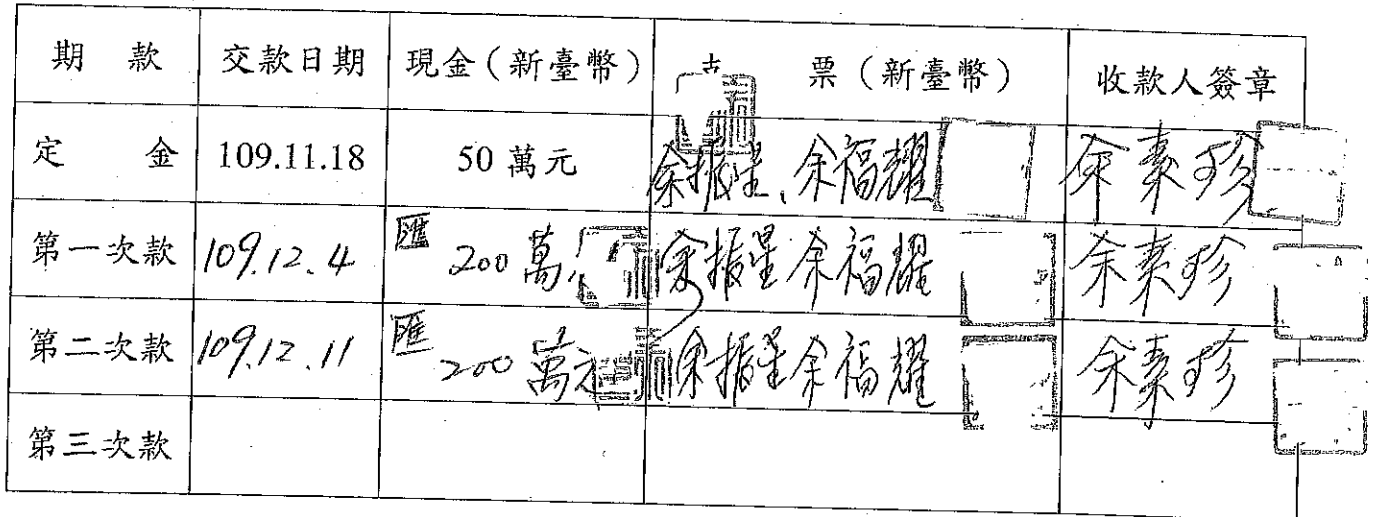 期 款 交款日期 現金(新臺幣) 票(新臺幣) 收款人簽章
定 金 109.11.18 50萬元 余振星、余福耀 余素珍
第一次款 109.12.4 匯 200萬 余振星 余福耀 余素珍
第二次款 109.12.11 匯 200萬元 余振星 余福耀 余素珍
第三次款